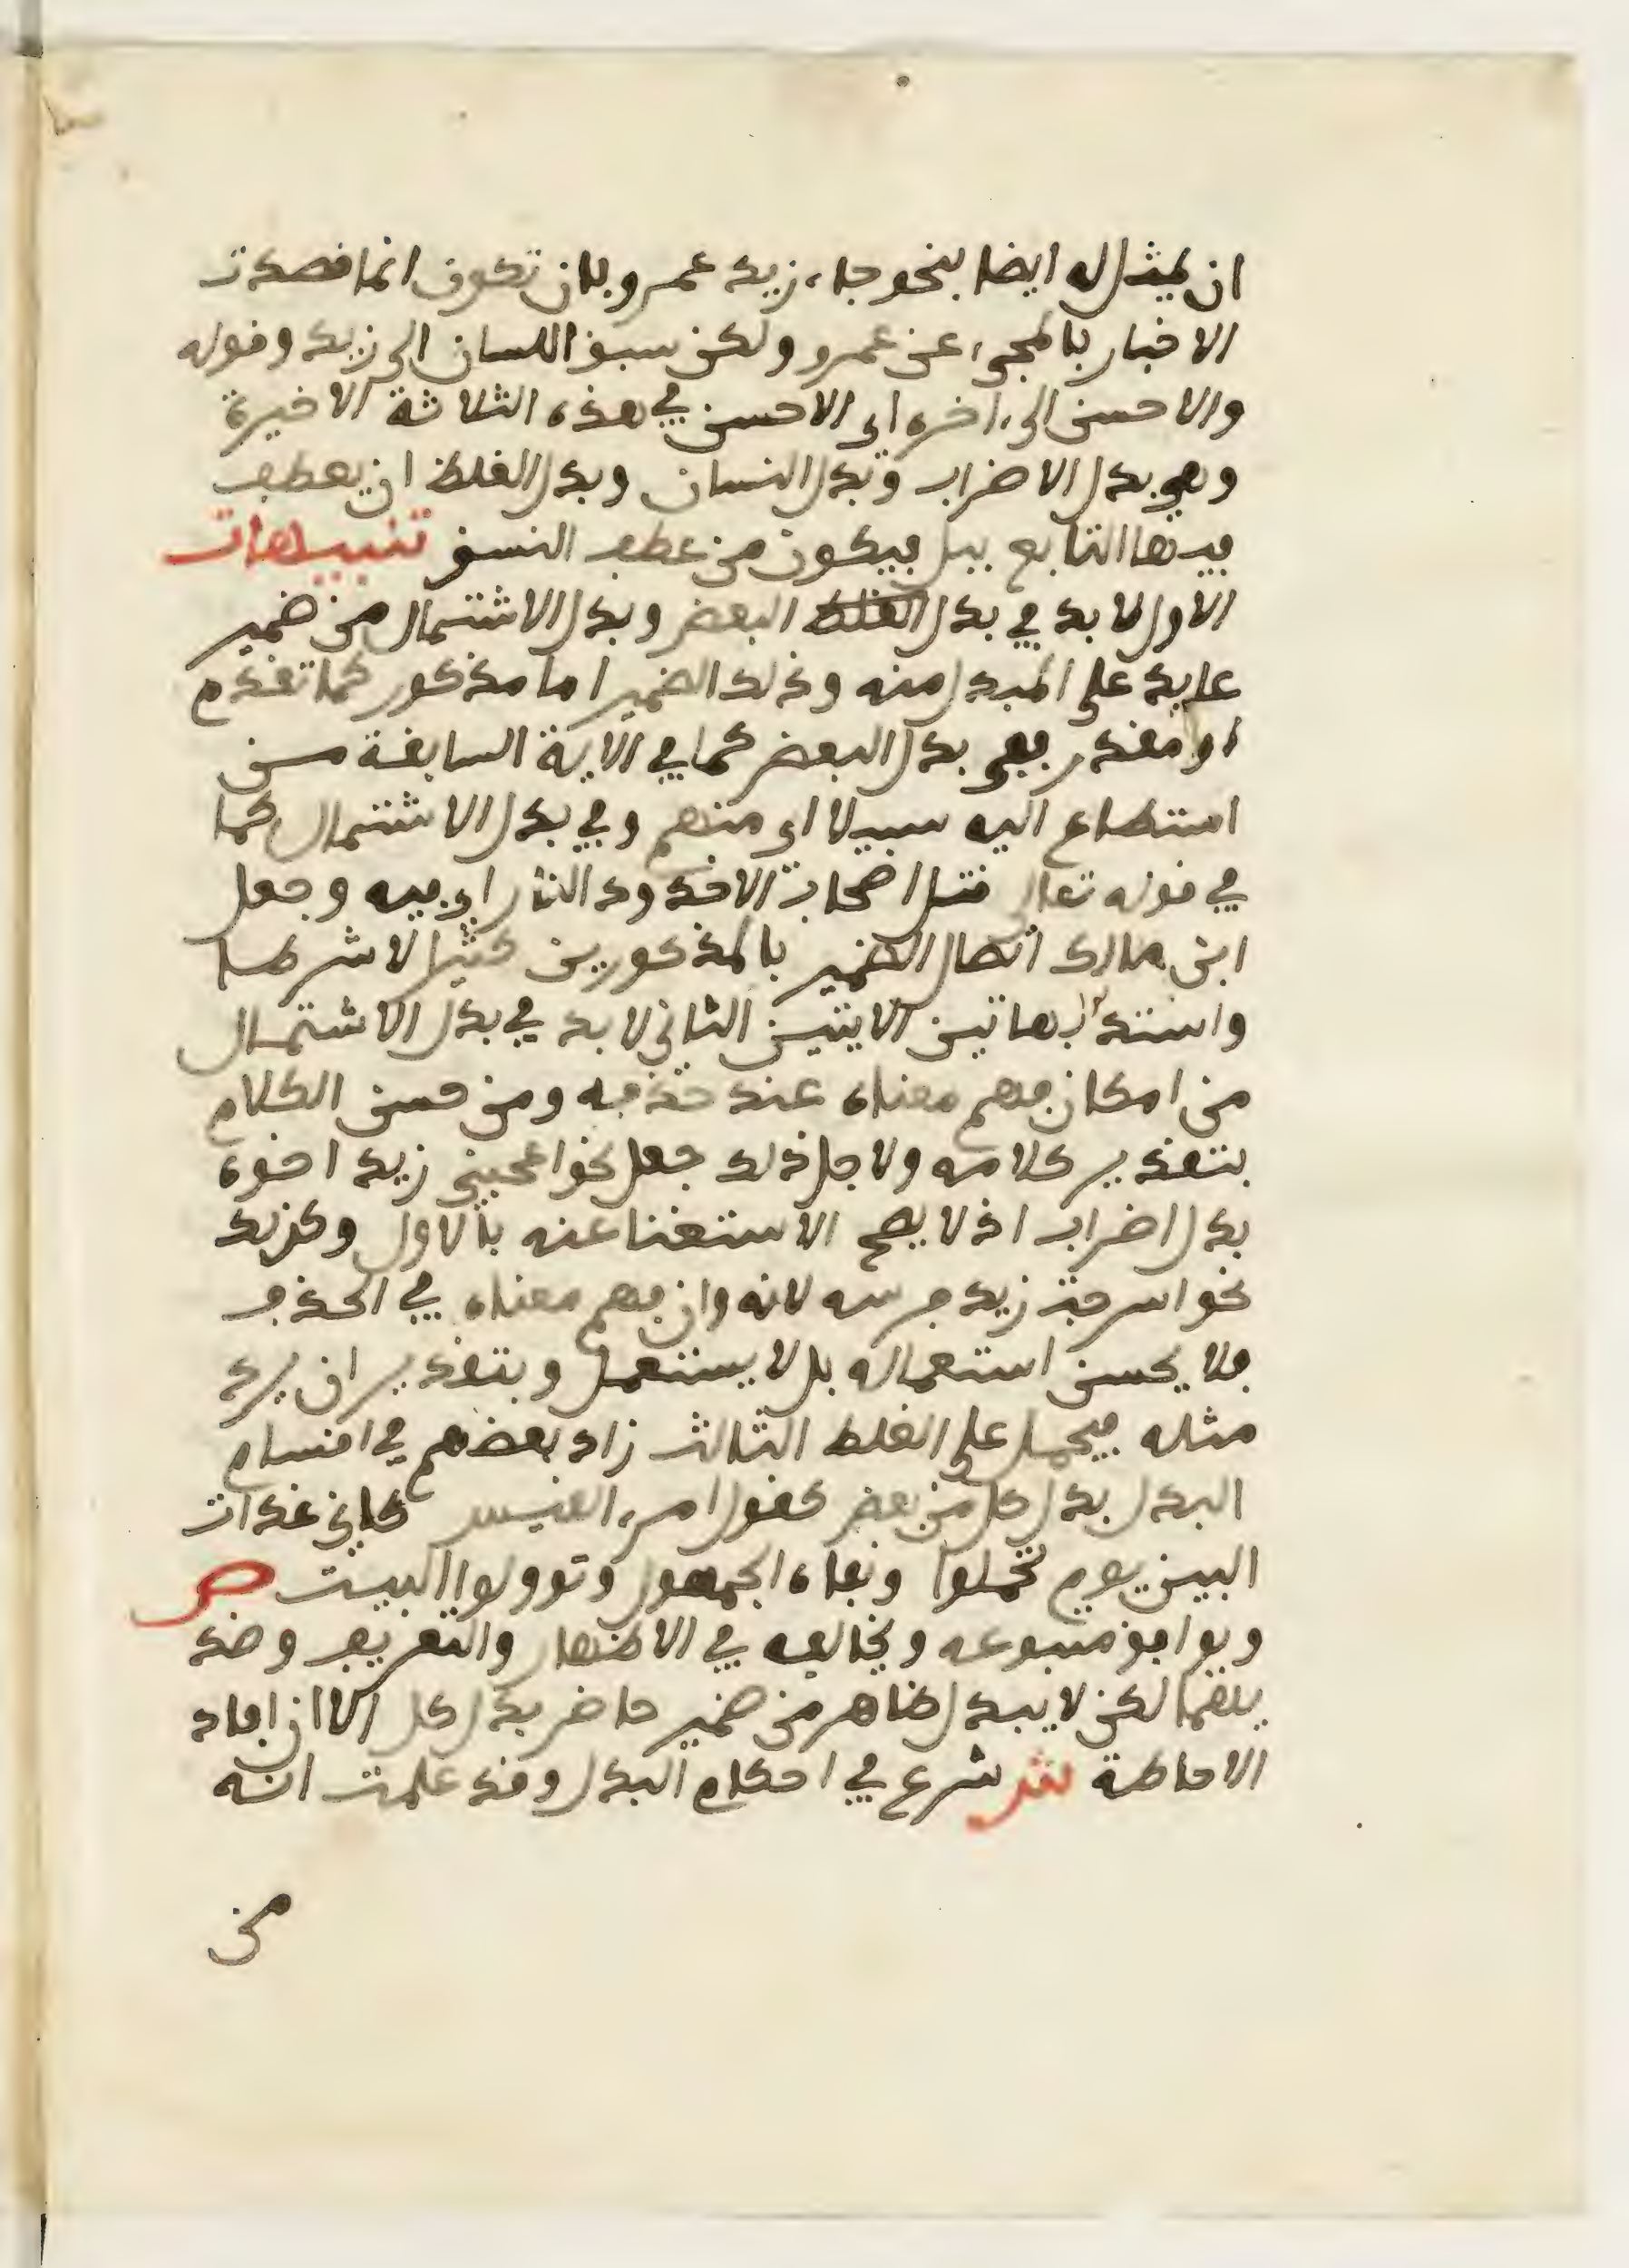 ان يمثل له ايضا بنحو جاء زيد عمرو بان تكون انما قصدت
الاخبار بالمجيء عن عمرو ولكن سبق اللسان الى زيد وقوله
والاحسن الى اخره اي الاحسن في هذه الثلاثة الاخيرة
وهي بدل الاضراب وبدل النسيان وبدل الغلط ان يعطف
فيها التابع ببل فيكون من عطف النسق تنبيهات
الاول لا بد في بدل الغلط البعض وبدل الاشتمال من ضمير
عايد على المبدل منه وذلك الضمير اما مذكور كما تقدم
او مقدر ففي بدل البعض كما في الاية السابقة من
استطاع اليه سبيلا اي منهم وفي بدل الاشتمال كما
في قوله تعالى قتل اصحاب الاخدود النار اي فيه وجعل
ابن مالك اتصال الضمير بالمذكورين كثيرا لا شرطا
واستدل بهاتين الايتين الثاني لا بد في بدل الاشتمال
من امكان فهم معناه عند حذفه ومن حسن الكلام
بتقدير كلامه ولاجل ذلك جعل نحو اعجبني زيد اخوه
بدل اضراب اذ لا يصح الاستغنا عنه بالاول وكذلك
نحو اسرجت زيد فرسه لانه وان فهم معناه في الحذف
فلا يحسن استعماله بل لا يستعمل وبتقدير ان يرد
مثله فيحمل على الغلط الثالث زاد بعضهم في اقسام
البدل بدل كل من بعض كقول امرء القيس كاني غدات
البين يوم تحملوا ونفاه الجمهور وتوولوا البيت ص
ويوافق متبوعه ويخالفه في الاظهار والتعريف وضد
يلهما لكن لا يبدل ظاهر من ضمير حاضر بدل كل الا ان افاد
الاحاطة ش شرع في احكام البدل وقد علمت انه
من